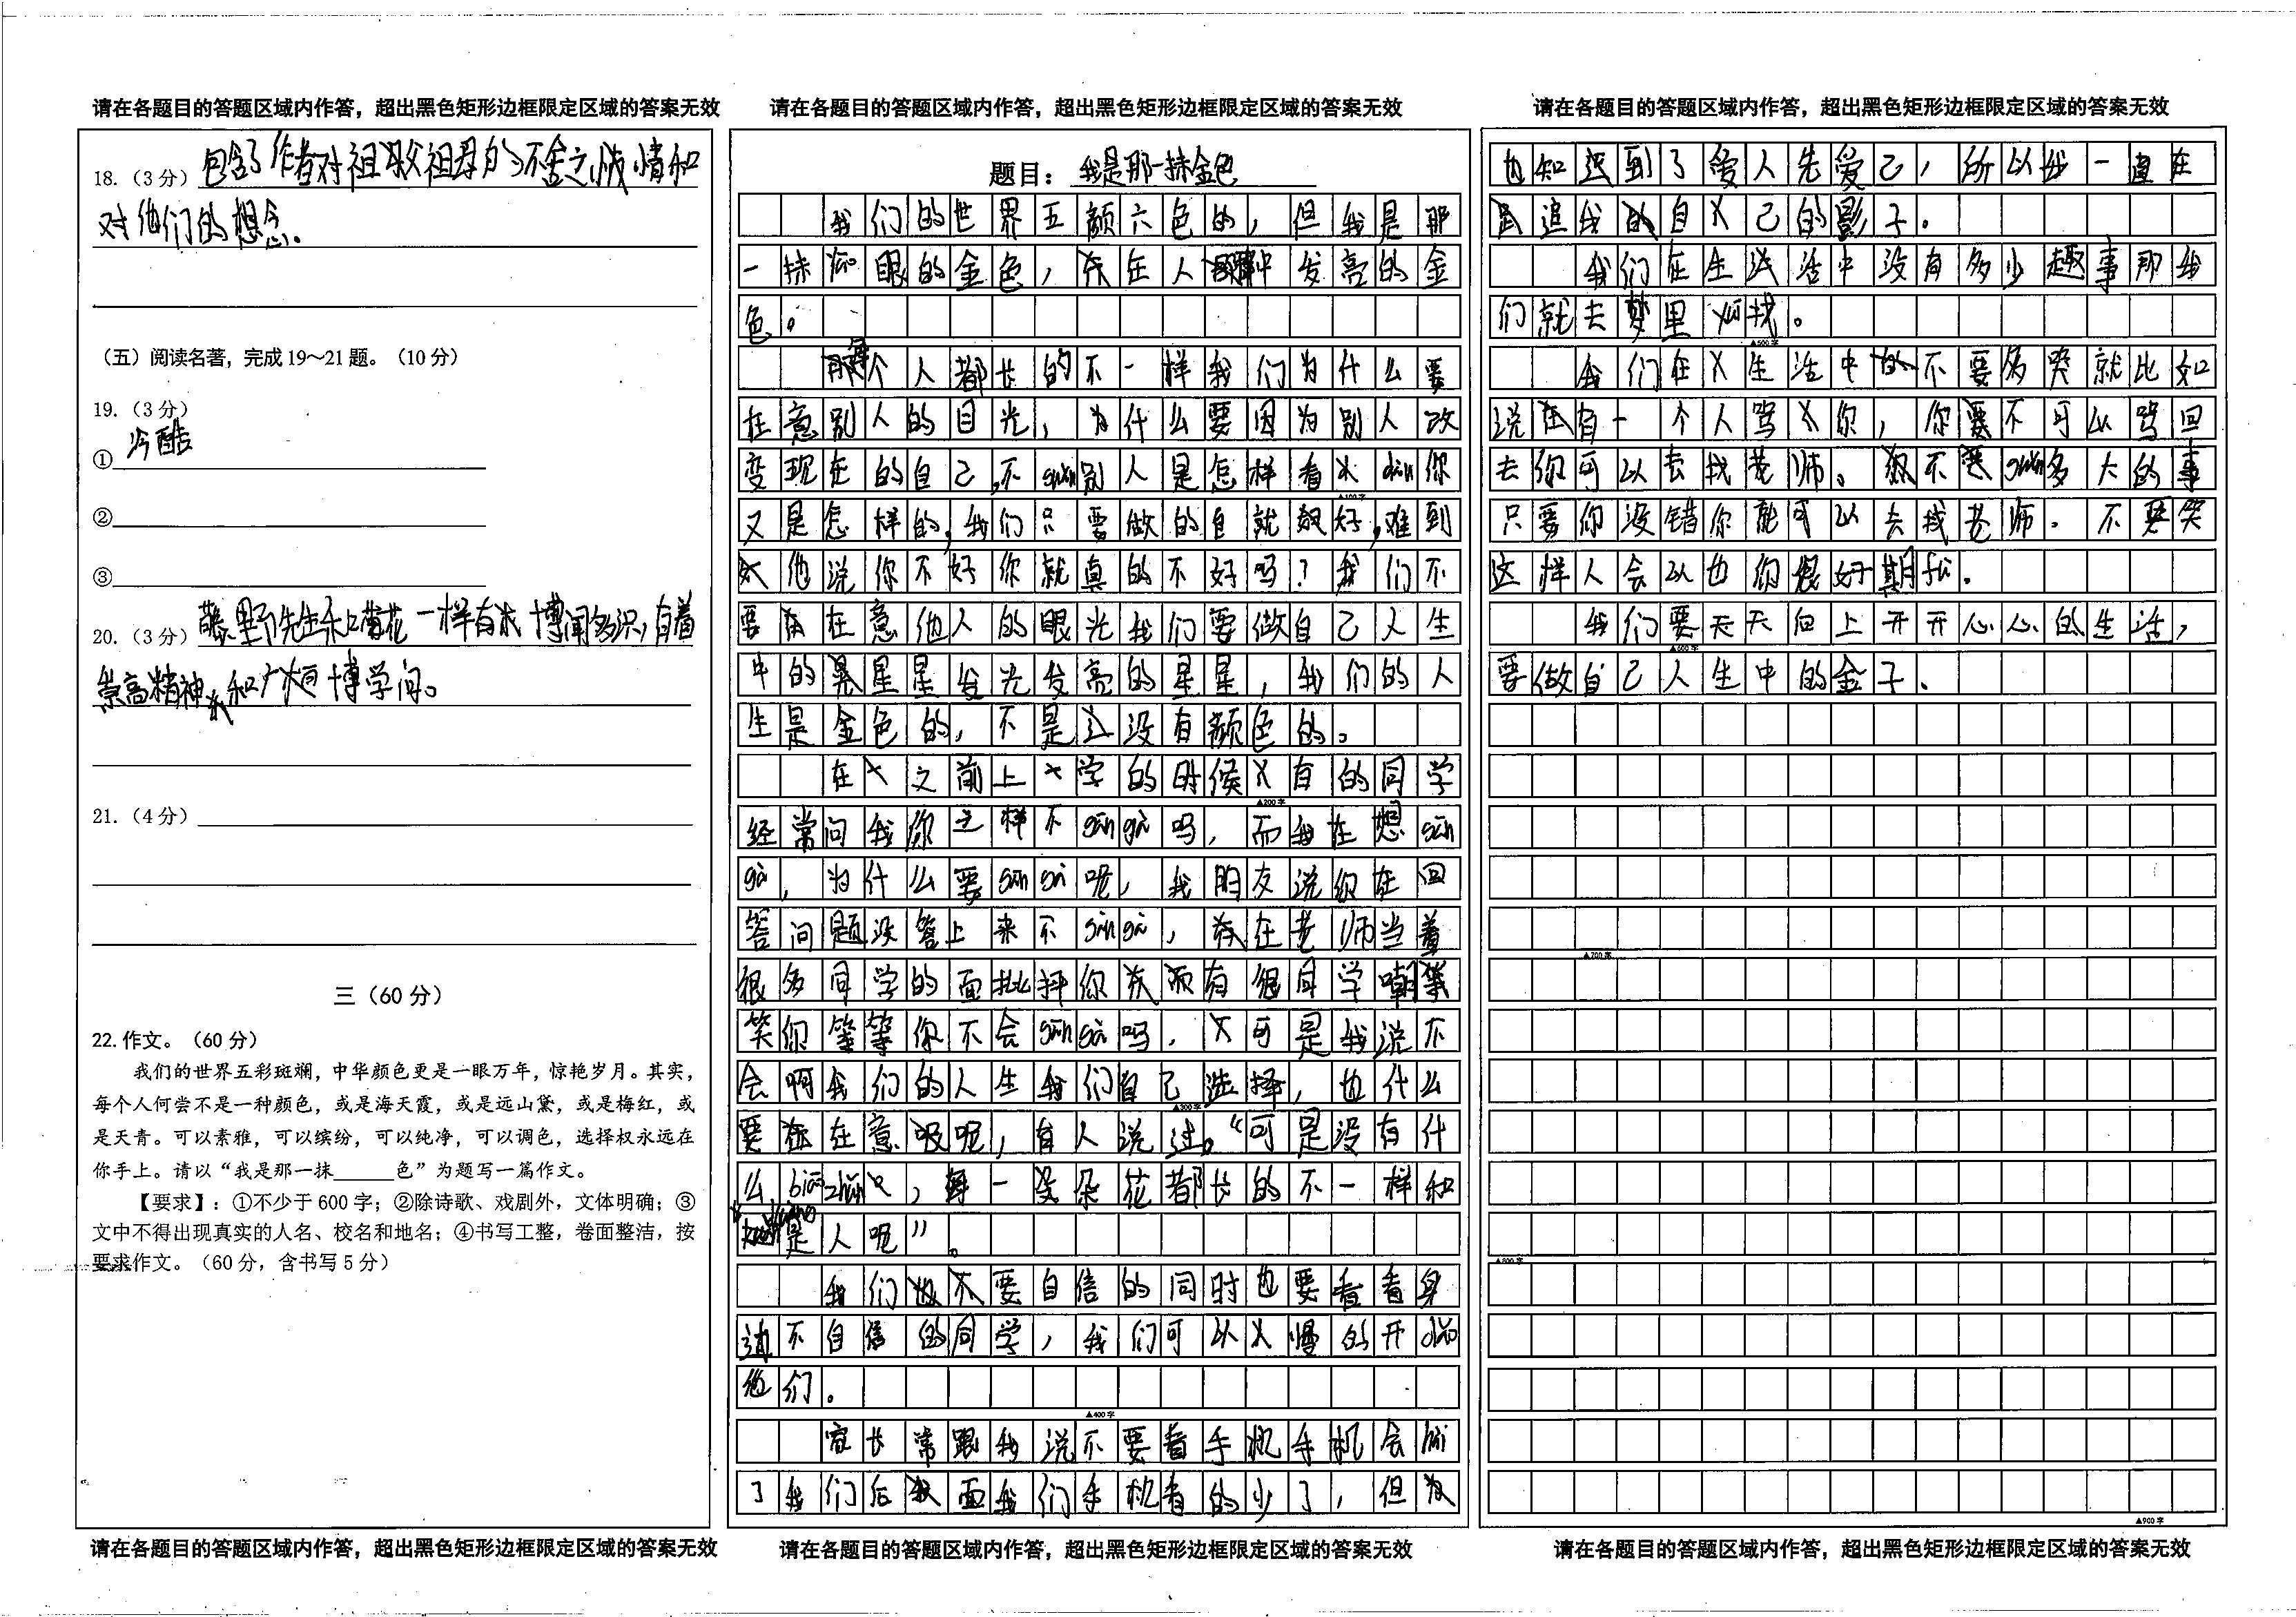 请在各题目的答题区域内作答，超出黑色矩形边框限定区域的答案无效
18.（3分）包含了作者对祖父祖母的不舍之情和
对他们的想念。
（五）阅读名著，完成19～21题。（10分）
19.（3分）
①冷酷
②
③
20.（3分）藤野先生和菊花一样有 博闻多识，有着
崇高精神和广 博学问。
21.（4分）
三（60分）
22.作文。（60分）
我们的世界五彩斑斓，中华颜色更是一眼万年，惊艳岁月。其实，
每个人何尝不是一种颜色，或是海天霞，或是远山黛，或是梅红，或
是天青。可以素雅，可以缤纷，可以纯净，可以调色，选择权永远在
你手上。请以“我是那一抹______色”为题写一篇作文。
【要求】：①不少于600字；②除诗歌、戏剧外，文体明确；③
文中不得出现真实的人名、校名和地名；④书写工整，卷面整洁，按
要求作文。（60分，含书写5分）
请在各题目的答题区域内作答，超出黑色矩形边框限定区域的答案无效
请在各题目的答题区域内作答，超出黑色矩形边框限定区域的答案无效
题目：我是那一抹金色
我们的世界五颜六色的，但我是那
一抹yao眼的金色，在人群中发亮的金
色。
每个人都长的不一样我们为什么要
在意别人的目光，为什么要因为别人改
变现在的自己，不guǎn别人是怎样看你
▲100字
又是怎样的，我们只要做的自就好，难到
他说你不好你就真的不好吗？我们不
要在意他人的眼光我们要做自己人生
中的星星发光发亮的星星，我们的人
生是金色的，不是没有颜色的。
在之前上学的时候有的同学
▲200字
经常问我你这样不gān gà吗，而我在想gān
gà，为什么要gān gà呢，我朋友说你在回
答问题没答上来不gān gà，在老师当着
很多同学的面批评你而有很同学嘲
笑你等等你不会gān gà吗，可是我说不
会啊我们的人生我们自己选择，也什么
▲300字
要在意呢，有人说过。“可是没有什
么biāo zhǔn，每一朵花都长的不一样和
是人呢”。
我们要自信的同时也要看看身
边不自信的同学，我们可以慢的开dǎo
他们。
▲400字
家长常跟我说不要看手机手机会
了我们后面我们手机看的少了，但
请在各题目的答题区域内作答，超出黑色矩形边框限定区域的答案无效
请在各题目的答题区域内作答，超出黑色矩形边框限定区域的答案无效
也知道到了爱人先爱己，所以我一直在
追我自己的影子。
我们在生活中没有多少趣事那我
们就去梦里找。
▲500字
我们在生活中不要多哭就比如
说有一个人骂你，你不可以骂回
去你可以去找老师。不要guǎn多大的事
只要你没错你就可以去找老师。不要笑
这样人会以也你很好期fu。
我们要天天向上开开心心的生活，
▲600字
要做自己人生中的金子。
▲700字
▲800字
▲900字
请在各题目的答题区域内作答，超出黑色矩形边框限定区域的答案无效